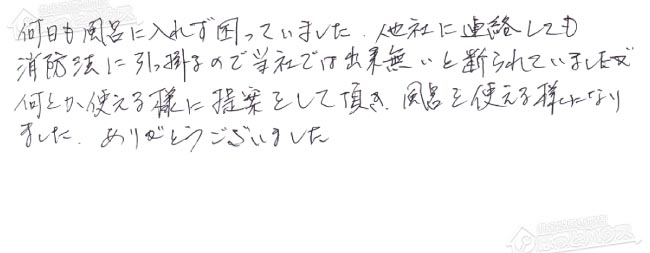 何日も風呂に入れず困っていました、他社に連絡しても
消防法に引っ掛るので当社では出来無いと断られていましたが
何とか使える様に提案をして頂き、風呂を使える様になり
ました、ありがとうございました